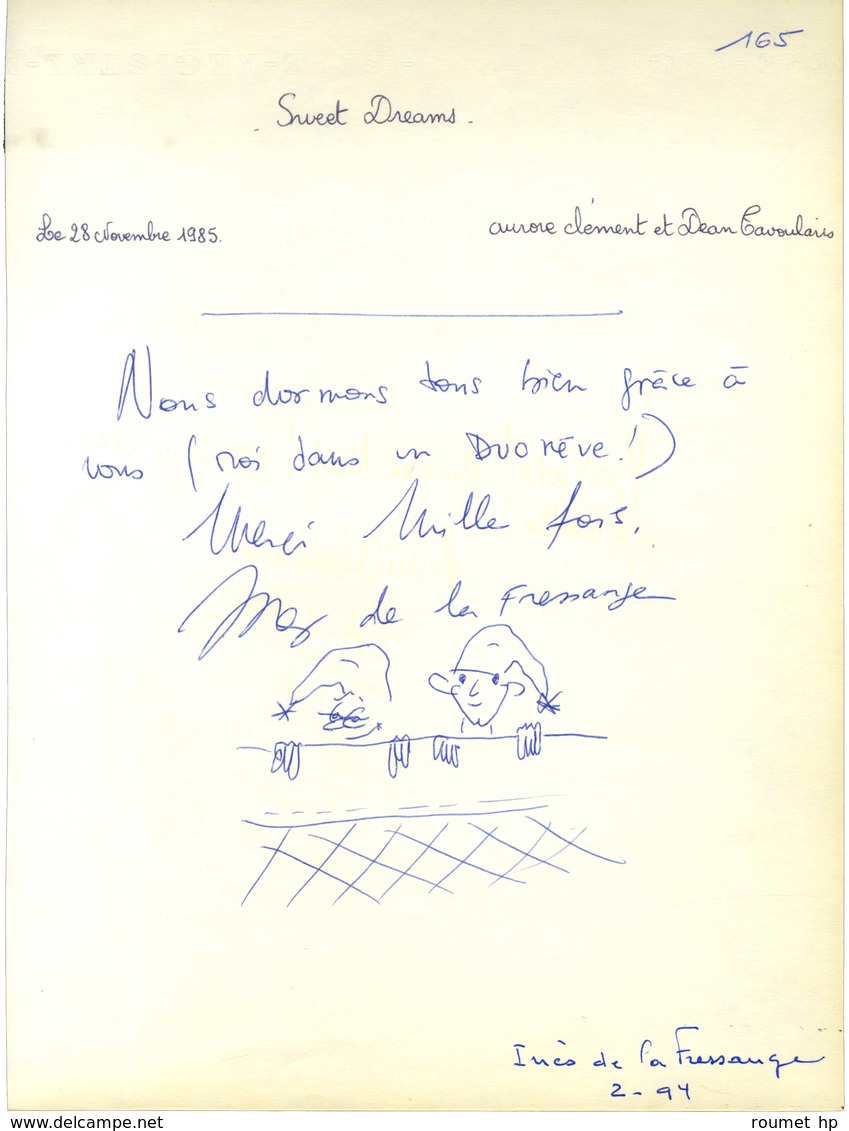 165
. Sweet Dreams .
Le 28 Novembre 1985.
aurore clément et Dean Tavoularis
Nous dormons tous bien grâce à
vous (moi dans un DUO RÊVE!)
Merci Mille fois.
Inès de la Fressange
Inès de la Fressange
2 - 94
www.delcampe.net
roumet hp